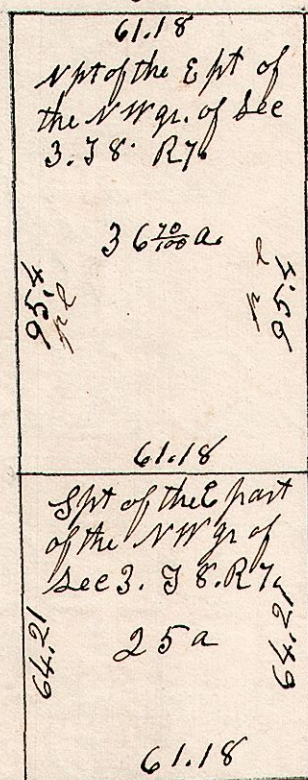 61.18
N pt of the E pt of
the N W qr. of Sec
3. T 8. R 7.
36 70/100 a.
95.4
pl
95.4
pl
61.18
S pt of the E part
of the N W qr of
Sec 3. T 8. R 7.
64.21
25 a
64.21
61.18